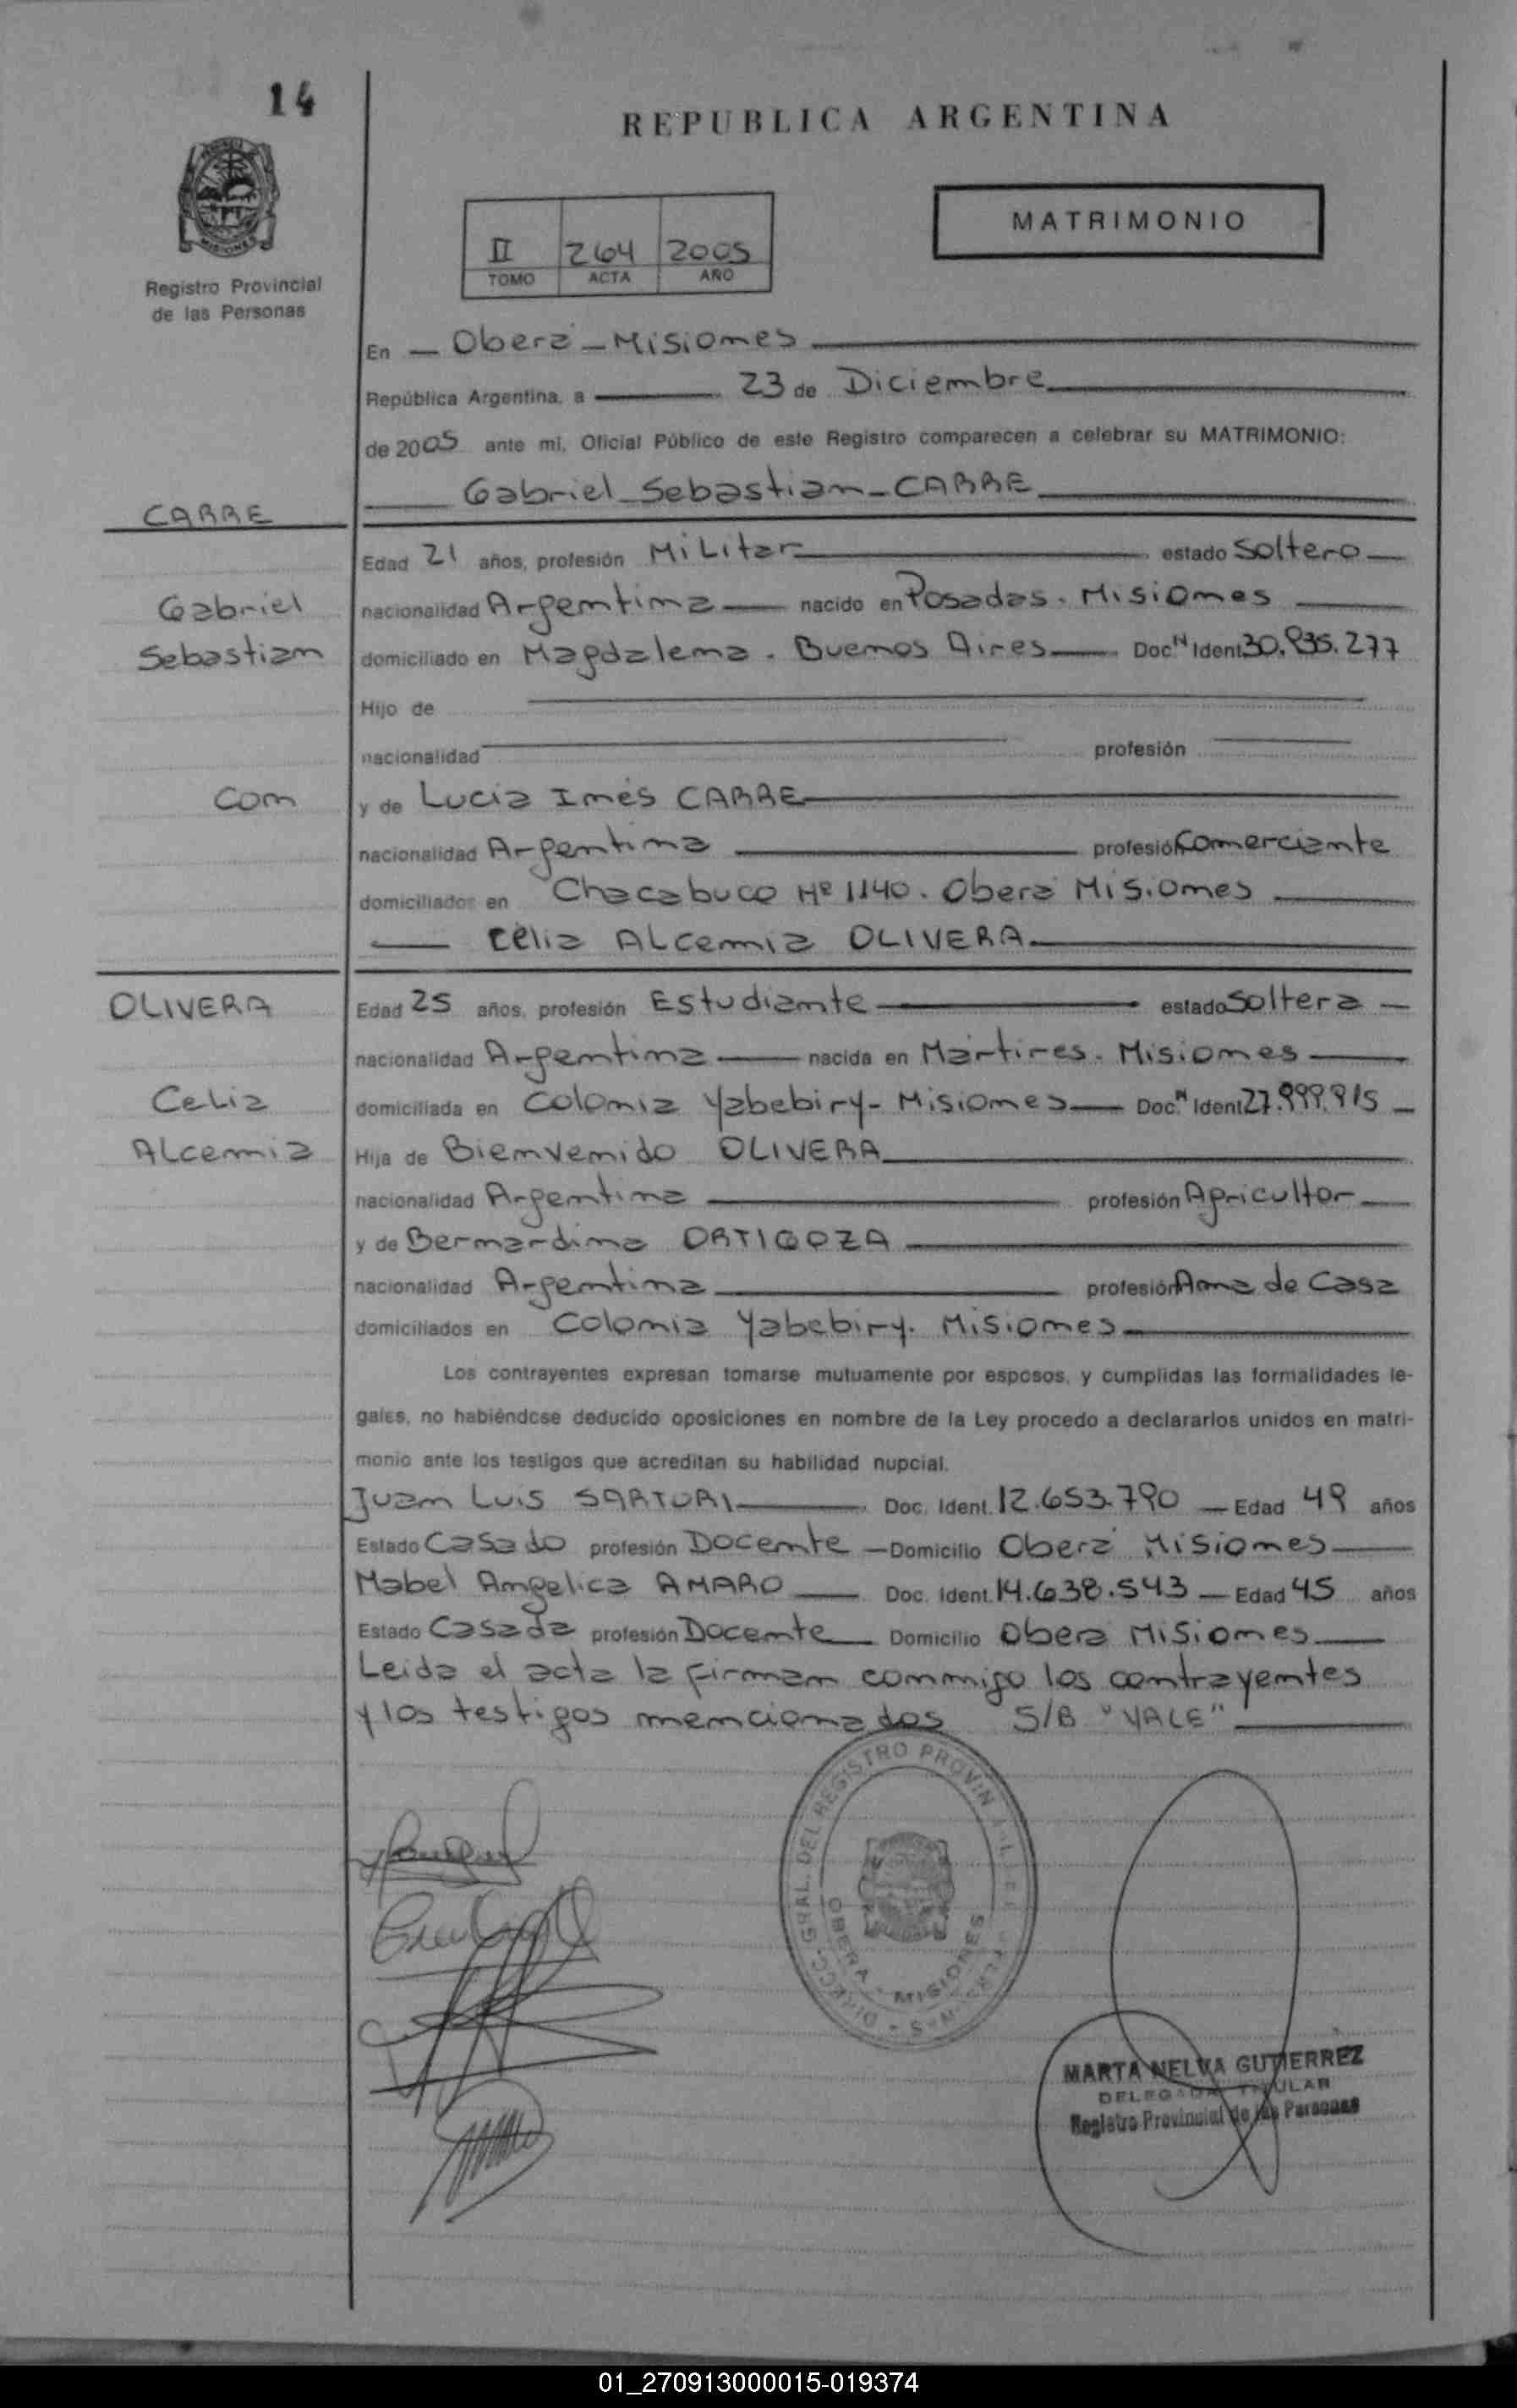 14
REPUBLICA ARGENTINA
MATRIMONIO
II 264 2005
TOMO ACTA AÑO
MISIONES
Registro Provincial
de las Personas
En Oberá - Misiones
República Argentina, a 23 de Diciembre
de 2005 ante mi, Oficial Público de este Registro comparecen a celebrar su MATRIMONIO:
Gabriel Sebastian CARRE
CARRE
Edad 21 años, profesión Militar estado Soltero
Gabriel
nacionalidad Argentina nacido en Posadas. Misiones
Sebastian
domiciliado en Magdalena. Buenos Aires Doc N Ident 30.935.277
Hijo de
nacionalidad profesión
Con
y de Lucia Inés CARRE
nacionalidad Argentina profesión Comerciante
domiciliados en Chacabuco Nº 1140. Oberá Misiones
Celia Alcenia OLIVERA
OLIVERA
Edad 25 años, profesión Estudiante estado Soltera
nacionalidad Argentina nacida en Mártires. Misiones
Celia
domiciliada en Colonia Yabebiry - Misiones Doc. N Ident 27.999.915
Alcenia
Hija de Bienvenido OLIVERA
nacionalidad Argentina profesión Agricultor
y de Bernardina ORTIGOZA
nacionalidad Argentina profesión Ama de Casa
domiciliados en Colonia Yabebiry. Misiones
Los contrayentes expresan tomarse mutuamente por esposos, y cumplidas las formalidades le-
gales, no habiéndose deducido oposiciones en nombre de la Ley procedo a declararlos unidos en matri-
monio ante los testigos que acreditan su habilidad nupcial.
Juan Luis SARTORI Doc. Ident. 12.653.790 Edad 49 años
Estado Casado profesión Docente Domicilio Oberá Misiones
Mabel Angelica AMARO Doc. Ident. 14.638.543 Edad 45 años
Estado Casada profesión Docente Domicilio Oberá Misiones
Leida el acta la firman conmigo los contrayentes
y los testigos mencionados S/B "VALE"
GRAL. DEL REGISTRO PROVIN
OBERA - MISIONES
MARTA NELVA GUTIERREZ
DELEGADA TITULAR
Registro Provincial de las Personas
01_270913000015-019374